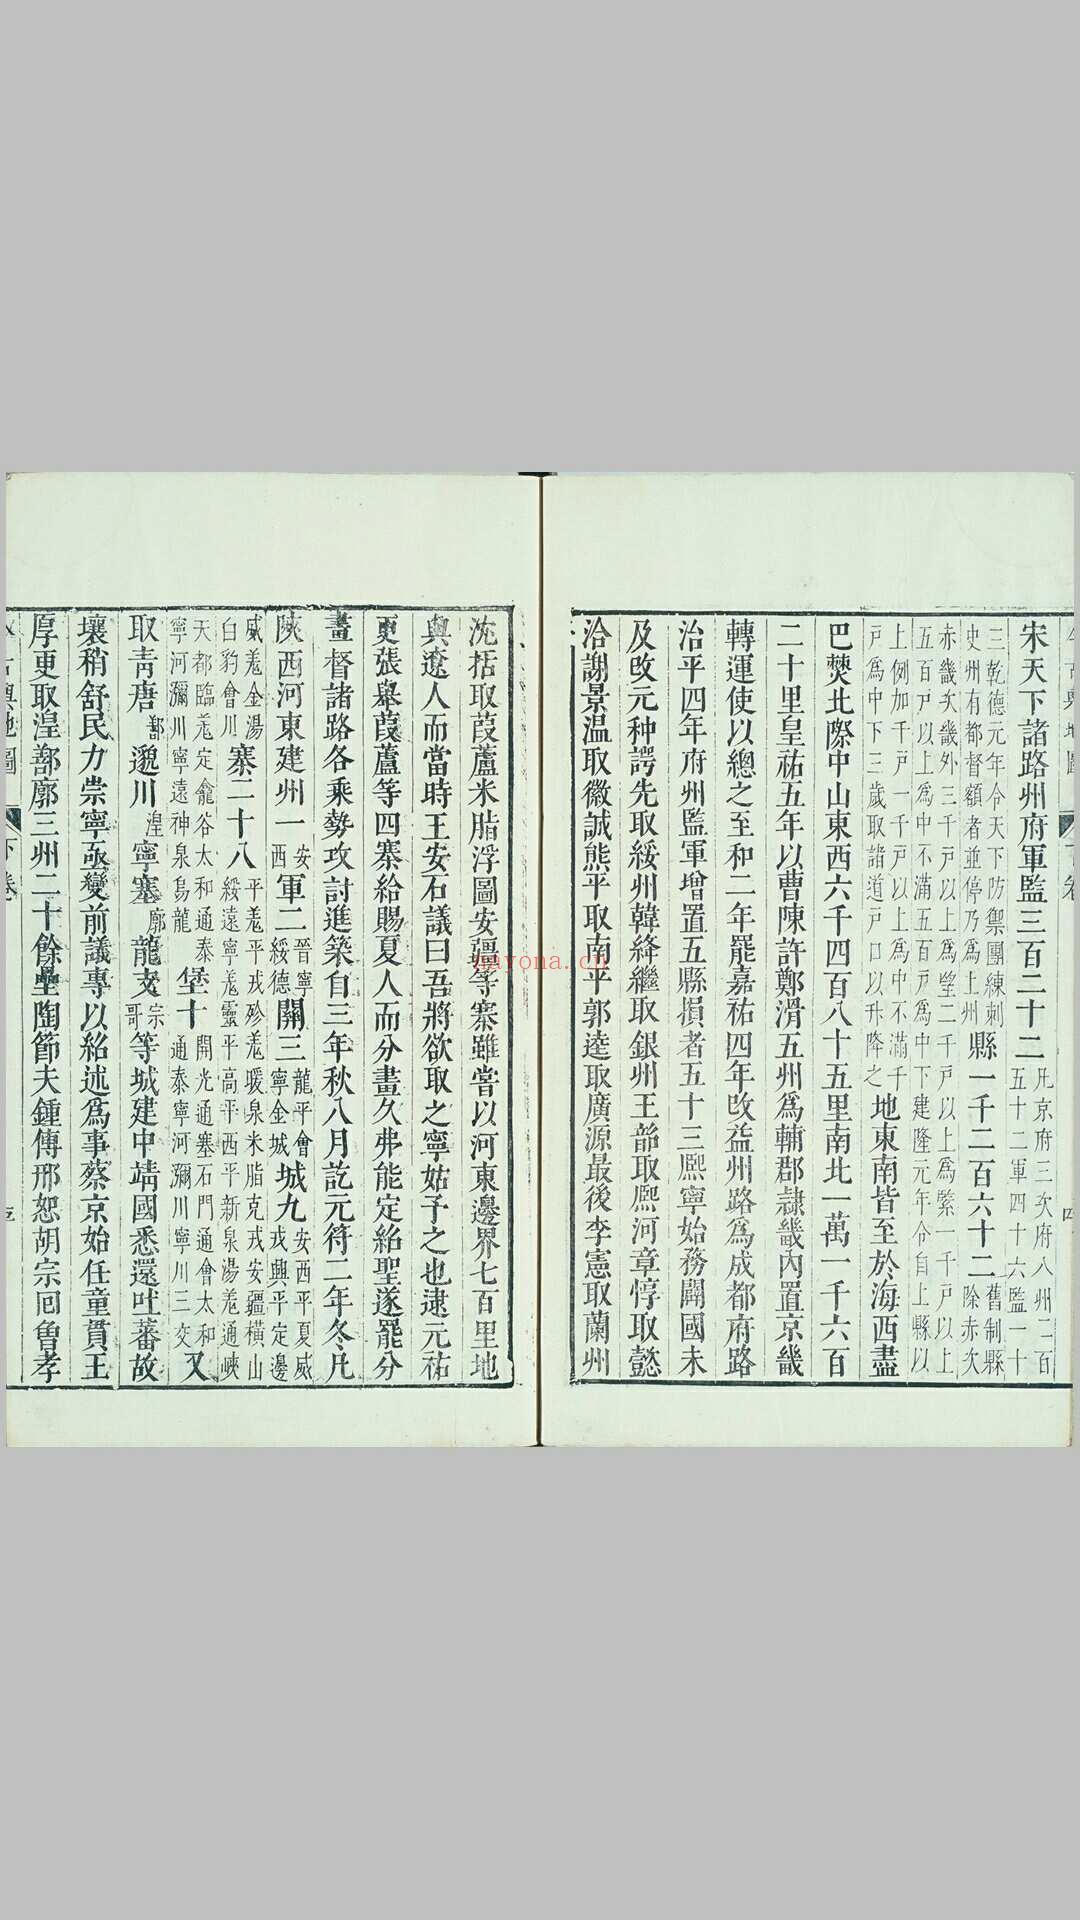 宋天下諸路州府軍監三百二十二凡京府三次府八州二百五十二軍四十六監一十
縣一千二百六十二舊制縣除赤次
三乾德元年令天下防禦團練刺史州有都督額者並停乃為上州
赤畿次畿外三千戸以上為望二千戸以上為緊一千戸以上
五百戸以上為中不滿五百戸為中下建隆元年令自上縣以
上例加千戸一千戸以上為中不滿千
戸為中下三歲取諸道戸口以升降之地東南皆至於海西盡
巴僰北際中山東西六千四百八十五里南北一萬一千六百
二十里皇祐五年以曹陳許鄭滑五州為輔郡隸畿內置京畿
轉運使以總之至和二年罷嘉祐四年改益州路為成都府路
治平四年府州監軍增置五縣損者五十三熙寧始務闢國未
及改元种諤先取綏州韓絳繼取銀州王韶取熙河章惇取懿
洽謝景溫取徽誠熊平取南平郭逵取廣源最後李憲取蘭州
沈括取葭蘆米脂浮圖安疆等寨雖嘗以河東邊界七百里地
與遼人而當時王安石議曰吾將欲取之寧姑予之也逮元祐
更張舉葭蘆等四寨給賜夏人而分畫久弗能定紹聖遂罷分
畫督諸路各乘勢攻討進築自三年秋八月訖元符二年冬凡
陝西河東建州一安西軍二晉寧綏德關三龍平會寧金城城九安西平夏威戎興平定邊
威羌金湯白豹會川寨二十八平羌平戎殄羌暖泉米脂克戎安疆橫山綏遠寧羌靈平高平西平新泉湯羌通峽
天都臨羌定龕谷太和通泰寧河瀰川寧遠神泉烏龍堡十開光通塞石門通會太和通泰寧河瀰川寧川三交又
取青唐鄯邈川湟寧塞廓龍支宗哥等城建中靖國悉還吐蕃故
壤稍舒民力崇寧亟變前議專以紹述為事蔡京始任童貫王
厚更取湟鄯廓三州二十餘壘陶節夫鍾傳邢恕胡宗回曾孝
古今輿地圖
下卷